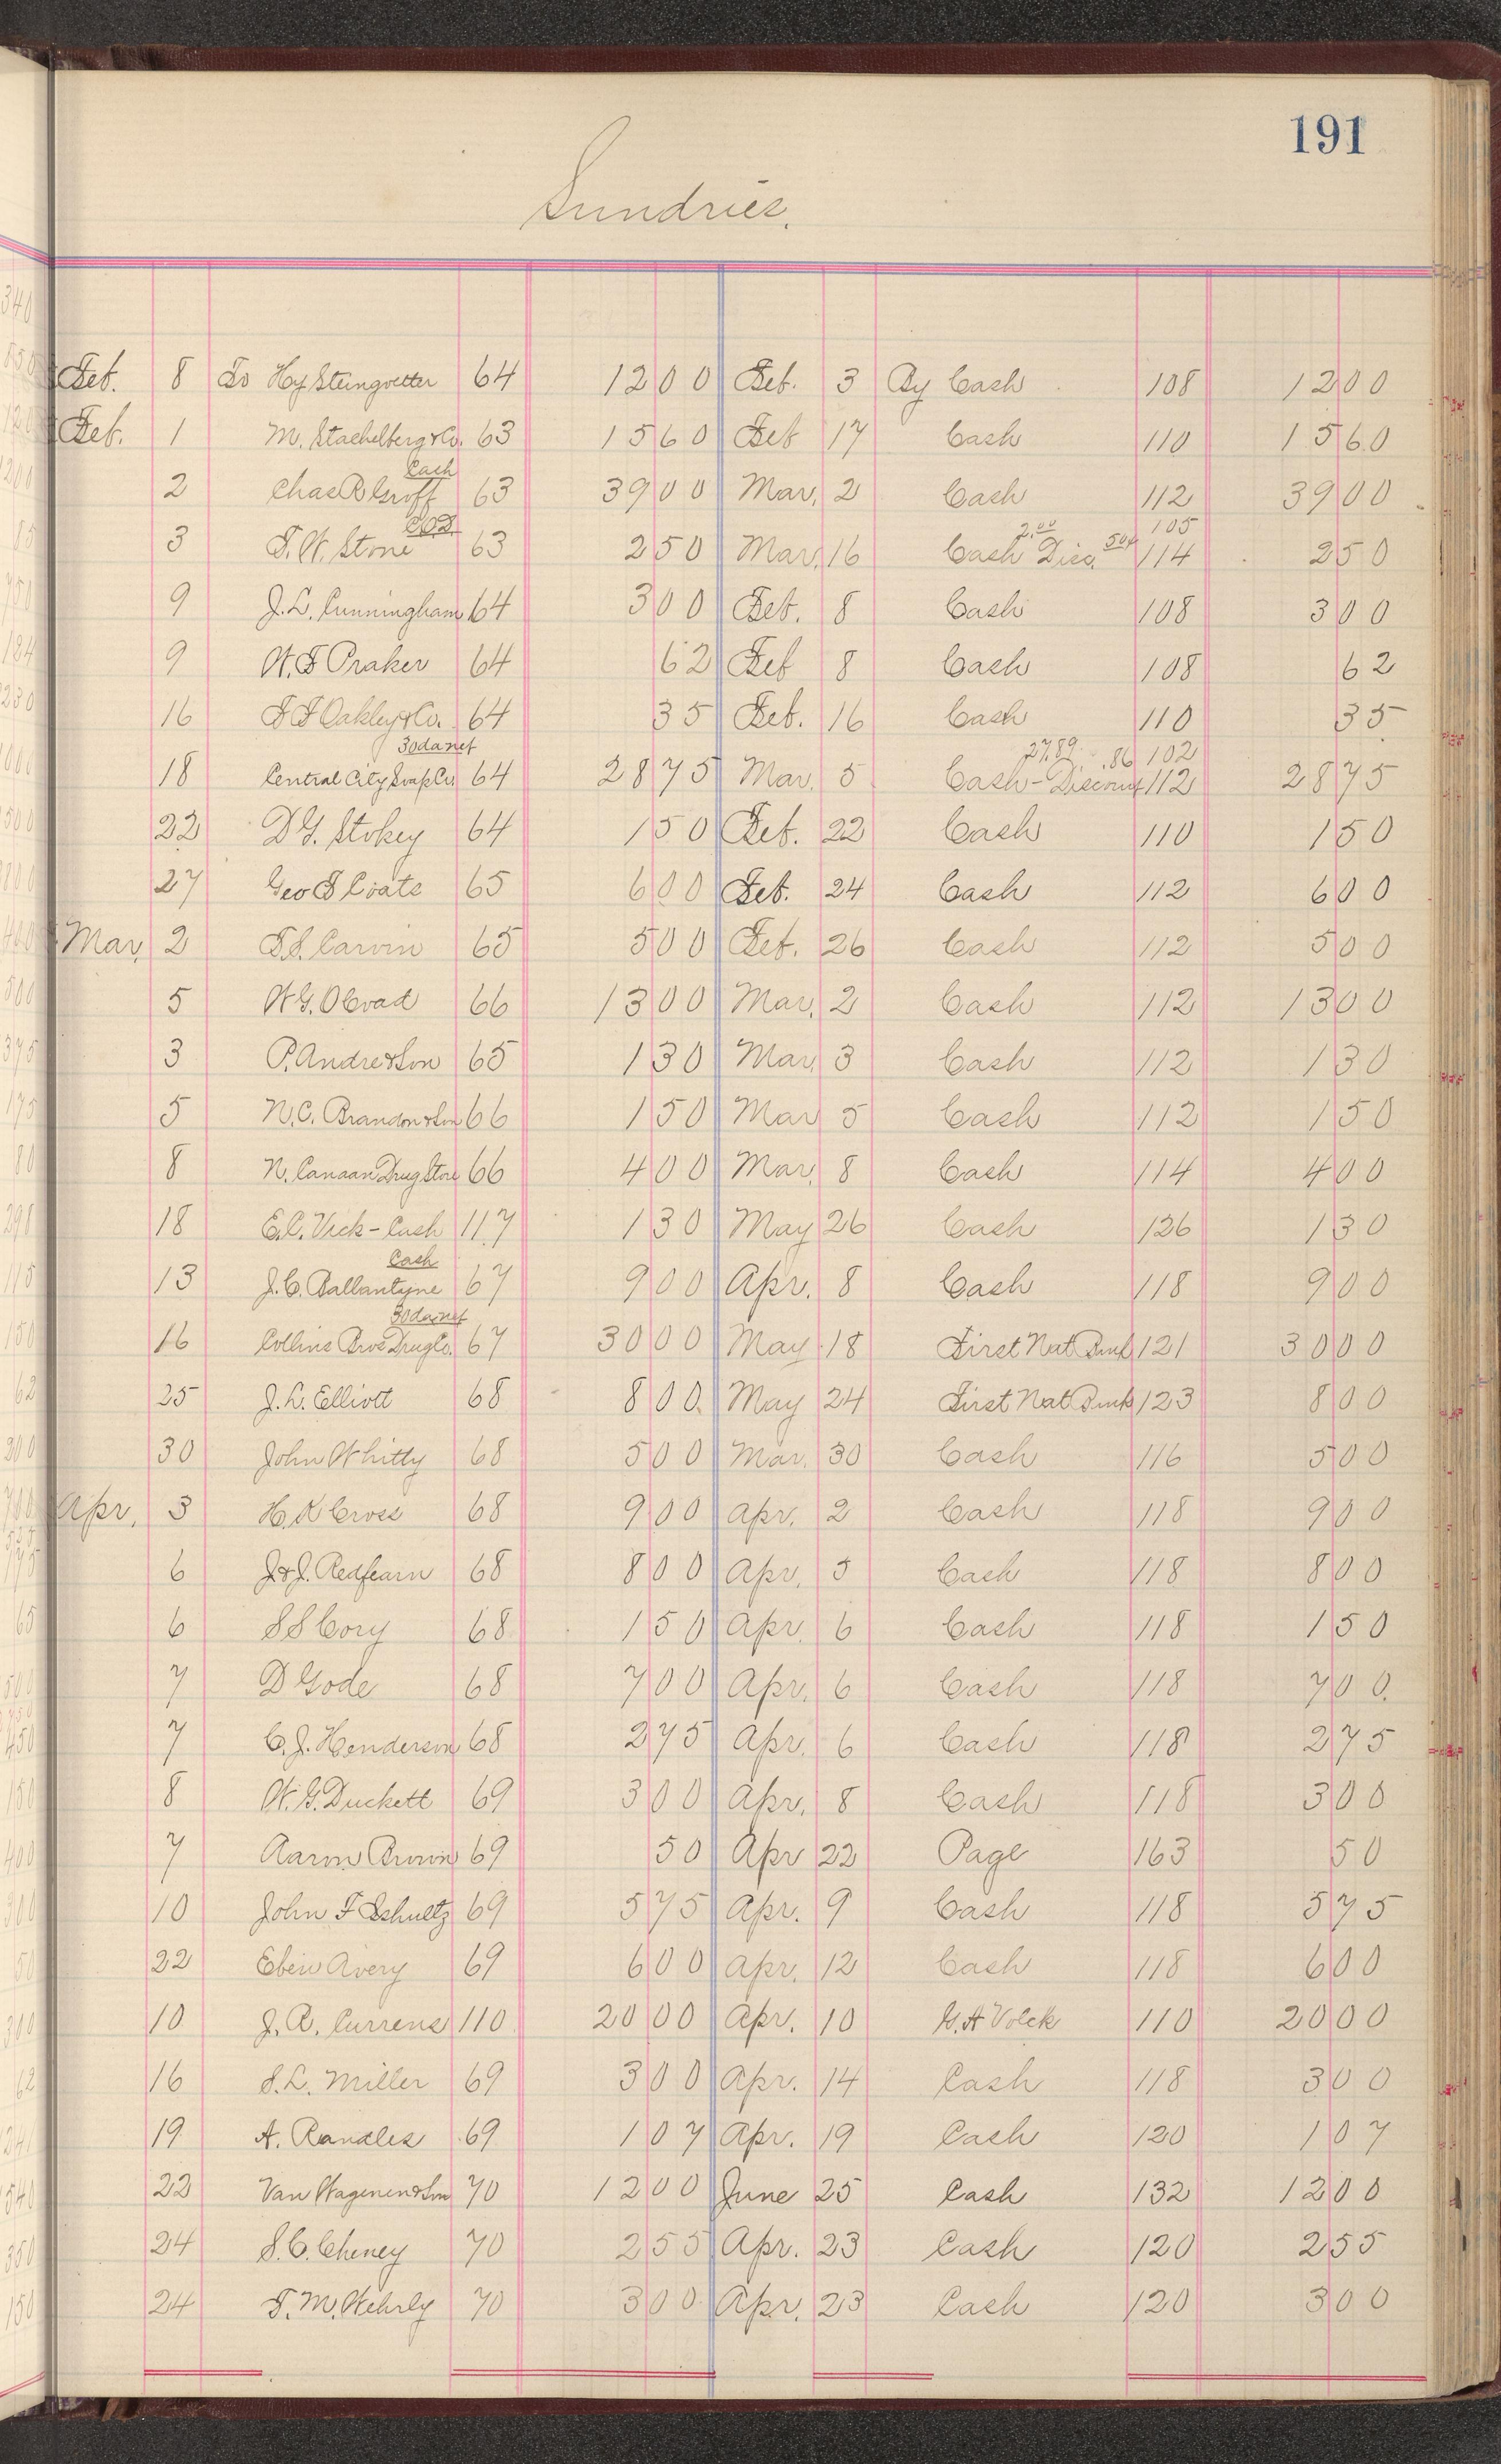 191
Sundries.
Feb. 8 To Hy Steingoetter 64 12 00 Feb. 3 By Cash 108 12 00
Feb. 1 M. Stachelberg & Co. 63 15 60 Feb 17 Cash 110 15 60
Cash
2 Chas R Groff 63 39 00 Mar. 2 Cash 112 39 00
C.O.D. 2.00 .50 105
3 F. W. Stone 63 2 50 Mar. 16 Cash Disc. 114 2 50
9 J. L. Cunningham 64 3 00 Feb. 8 Cash 108 3 00
9 W. F Praker 64 62 Feb 8 Cash 108 62
16 F F Oakley & Co. 64 35 Feb. 16 Cash 110 35
30 da net 27.89 .86 102
18 Central City Soap Co. 64 28 75 Mar. 5 Cash - Discount 112 28 75
22 D G. Stokey 64 1 50 Feb. 22 Cash 110 1 50
27 Geo F Coats 65 6 00 Feb. 24 Cash 112 6 00
Mar. 2 F. S. Carvin 65 5 00 Feb. 26 Cash 112 5 00
5 W G. 66 13 00 Mar. 2 Cash 112 13 00
3 P. Andre & Son 65 1 30 Mar. 3 Cash 112 1 30
5 N. C. Brandon & Son 66 1 50 Mar 5 Cash 112 1 50
8 N. Canaan Drug Store 66 4 00 Mar. 8 Cash 114 4 00
18 E. C. Vick - Cash 117 1 30 May 26 Cash 126 1 30
Cash
13 J. C. Ballantyne 67 9 00 Apr. 8 Cash 118 9 00
30 da net
16 Collins Bros Drug Co. 67 30 00 May 18 First Nat Bank 121 30 00
25 J. L. Elliott 68 8 00 May 24 First Nat Bank 123 8 00
30 John Whitty 68 5 00 Mar. 30 Cash 116 5 00
Apr. 3 H. K Cross 68 9 00 Apr. 2 Cash 118 9 00
6 J & J. Redfearn 68 8 00 Apr. 5 Cash 118 8 00
6 S S Cory 68 1 50 Apr. 6 Cash 118 1 50
7 D Gode 68 7 00 Apr. 6 Cash 118 7 00
7 C. J. Henderson 68 2 75 Apr. 6 Cash 118 2 75
8 W. G. Duckett 69 3 00 Apr. 8 Cash 118 3 00
7 Aaron Brown 69 50 Apr 22 Page 163 50
10 John F Schultz 69 5 75 Apr. 9 Cash 118 5 75
22 Eben Avery 69 6 00 Apr. 12 Cash 118 6 00
10 J. R. Currens 110 20 00 Apr. 10 G. A Volck 110 20 00
16 S. L. Miller 69 3 00 Apr. 14 Cash 118 3 00
19 A. Randles 69 1 07 Apr. 19 Cash 120 1 07
22 Van Wagenen & Son 70 12 00 June 25 Cash 132 12 00
24 S. C. Cheney 70 2 55 Apr. 23 Cash 120 2 55
24 F. M. Wehrly 70 3 00 Apr. 23 Cash 120 3 00